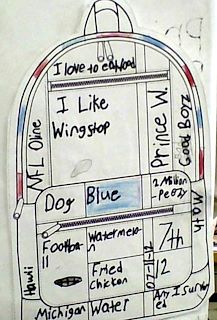 I love to eat food
I Like
Wingstop
NFL Oline
Prince W.
Good Boyz
Dog
Blue
2 Million
Peezy
Math
Footba
ll
Watermelo
n
7th
Fried
Chicken
07-11-12
12
Hawii
Michigan
Water
Any I su
ed